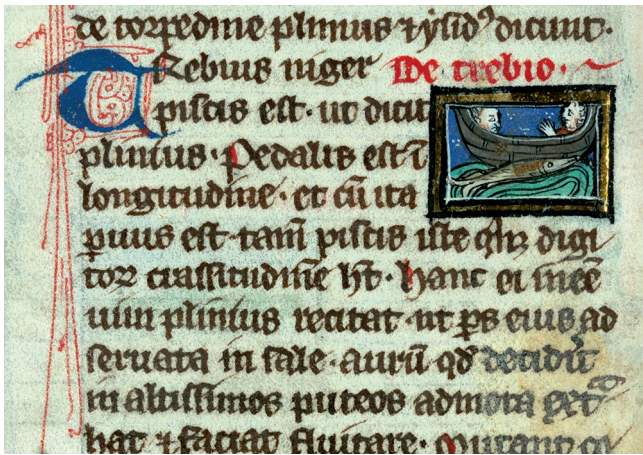 de torpedine plinius ⁊ ysidꝰ dicunt.
Trebius niger De trebio.
piscis est. ut dicit
plinius. Pedalis est ī
longitudine. et cū ita
ꝑuus est tam̄ piscis iste qͥnqꝫ digi
toꝝ crassitudinē hт̄. hanc ei
uim plinius recitat. ut ꝑs eius ad
seruata in sale. aurū qd̄ decidit
in altissimos puteos admota extͣ
hat ⁊ faciat fluitare.